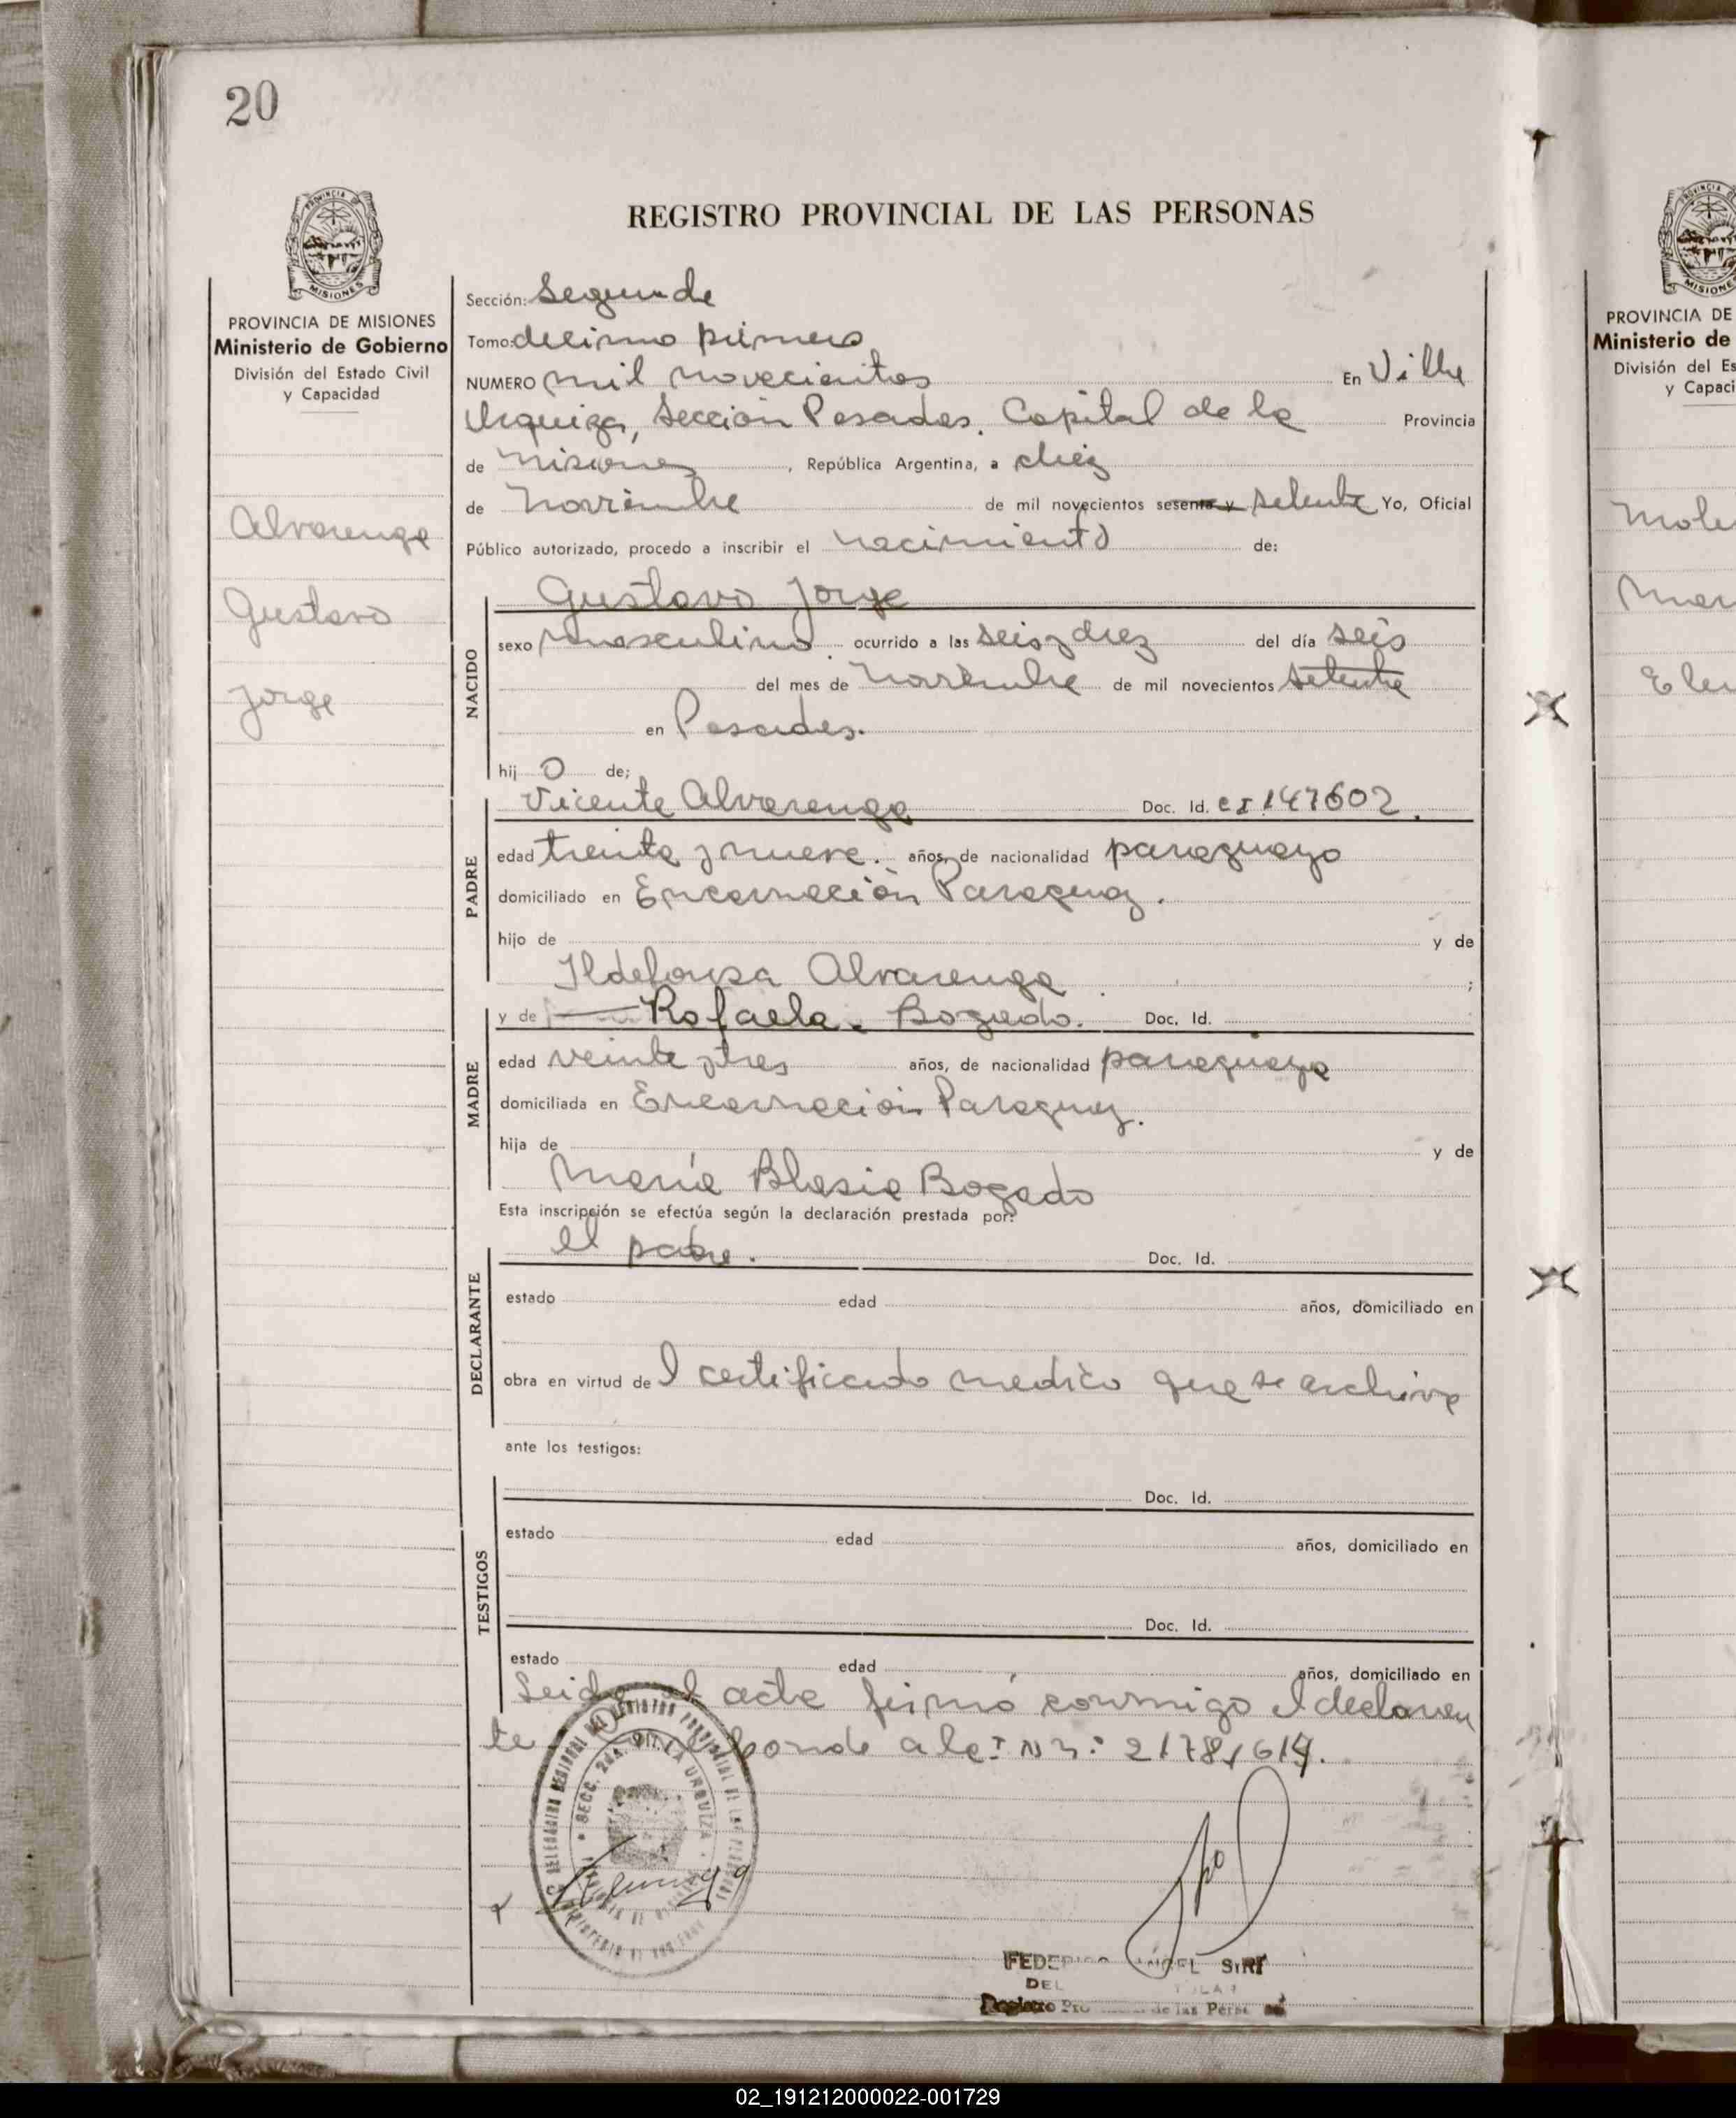 20
PROVINCIA DE MISIONES
Ministerio de Gobierno
División del Estado Civil
y Capacidad
Alvarenga
Gustavo
Jorge
REGISTRO PROVINCIAL DE LAS PERSONAS
Sección: Segunda
Tomo: decimo primero
NUMERO mil novecientos En Villa
Urquiza, Sección Posadas. Capital de la Provincia
de Misiones, República Argentina, a diez
de Noviembre de mil novecientos sesenta y setenta Yo, Oficial
Público autorizado, procedo a inscribir el nacimiento de:
Gustavo Jorge
NACIDO
sexo masculino. ocurrido a las seis y diez del día seis
del mes de Noviembre de mil novecientos setenta
en Posadas.
hij o de;
PADRE
Vicente Alvarenga Doc. Id. 147602.
edad treinta y nueve. años, de nacionalidad paraguayo
domiciliado en Encarnación Paraguay.
hijo de y de
Ildefonsa Alvarenga ;
MADRE
y de Rafaela. Bogado. Doc. Id.
edad veinte y tres años, de nacionalidad paraguaya
domiciliada en Encarnación Paraguay.
hija de y de
María Blasia Bogado
Esta inscripción se efectúa según la declaración prestada por:
DECLARANTE
el padre. Doc. Id.
estado edad años, domiciliado en
obra en virtud de l certificado medico que se archiva
ante los testigos:
TESTIGOS
Doc. Id.
estado edad años, domiciliado en
Doc. Id.
estado edad años, domiciliado en
Leida el acta firmó conmigo el declaran
te
SECC. 2da. VILLA URQUIZA
FEDERICO ANGEL
DEL
de las
MISIONES
PROVINCIA DE
Ministerio de
División del Es
y Capaci
02_191212000022-001729